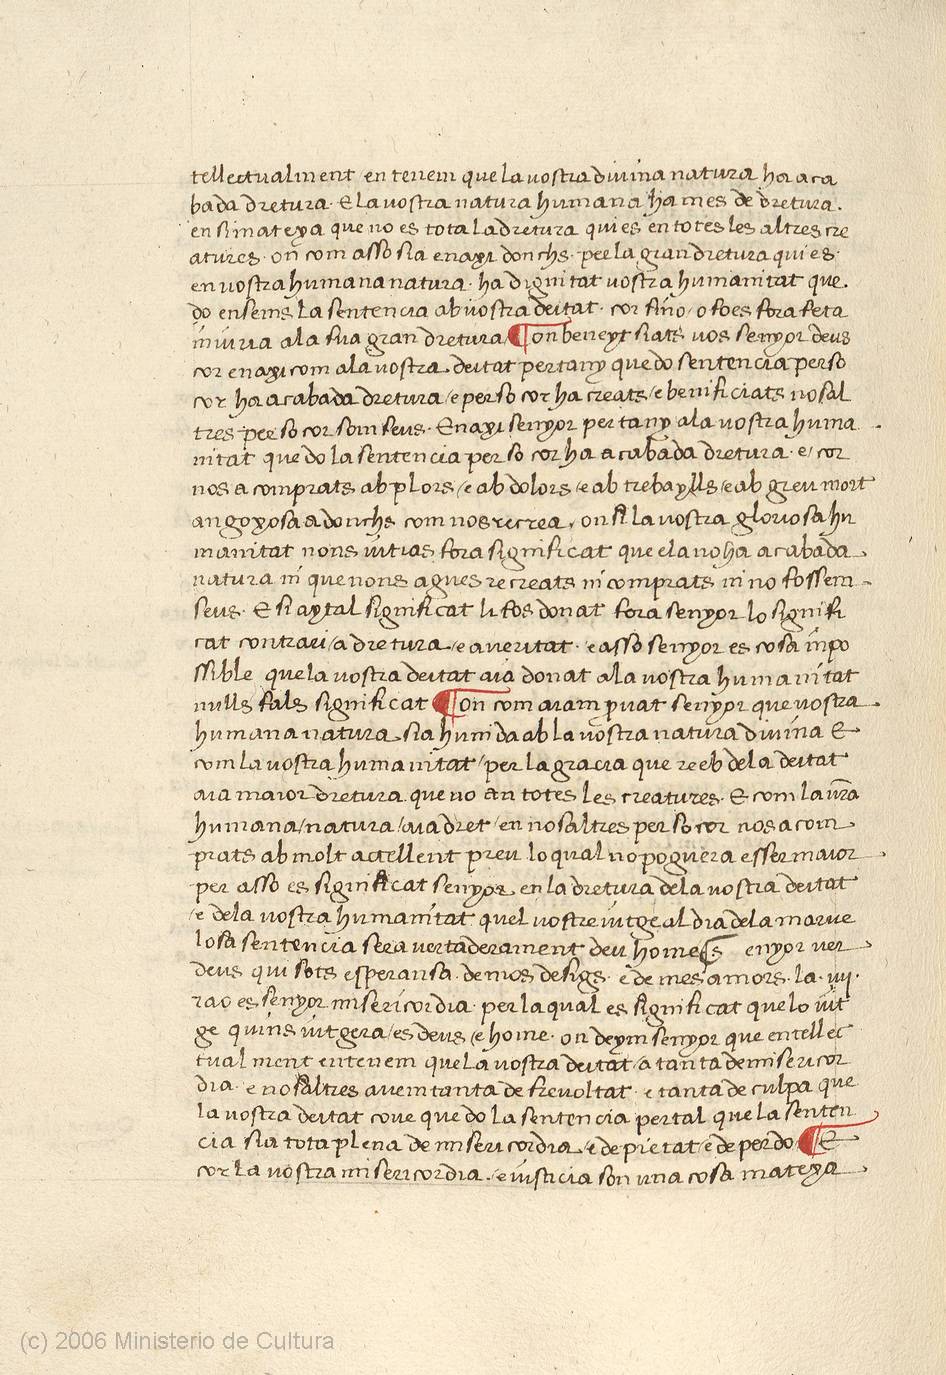 tellectualment entenem que la vostra divina natura ha aca
bada dretura · E la vostra natura humana ha mes de dretura .
en si mateya que no es tota la dretura qui es en totes les altres cre
atures · on com asso sia enaxi donchs · per la gran dretura qui es ·
en vostra humana natura · ha dignitat vostra humanitat que .
do ensems la sentencia ab vostra deitat · cor si no / o foes fora feta
iniuria a la sua gran dretura ¶ on beneyt siats vos senyor deus
cor enaxi com a la vostra deitat pertany que do sentencia per so
cor ha acabada dretura / e per so cor ha creats / e benificiats nosal
tres per so cor som seus · Enaxi senyor pertany a la vostra huma
nitat que do la sentencia per so cor ha acabada dretura · e / cor
nos a comprats ab plors / e ab dolors / e ab trebaylls / e ab greu mort
angoxosa adonchs com nos recrea , on si la vostra gloriosa hu
manitat nons iutias fora significat que ela no ha acabada
natura ni que nons agues recreats ni comprats ni no fossem
seus · E si aytal significat li fos donat fora senyor lo signifi
cat contrari / a dretura / e a veritat · e asso senyor es cosa inpo
ssible que la vostra deitat aia donat a la vostra humanitat
nulls fals significat ¶ on com aiam puat senyor que vostra
humana natura sia hunida ab la vostra natura divina E
com la vostra humanitat / per la gracia que reeb de la deitat
aia maior dretura que no an totes les creatures · E com la vra
humana / natura / aia dret / en nosaltres per so cor nos a com
prats ab molt actellent preu lo qual no poguera esser maior
per asso es significat senyor en la dretura de la vostra deitat
/ e de la vostra humanitat quel vostre iutge al dia de la marve
losa sentencia sera vertaderament deu home Senyor ver
deus qui sots esperansa · de mos desigs · e de mes amors · la · iiij ·
rao es senyor misericordia · per la qual es significat que lo iut
ge quins iutgera / es deus / e home · on deym senyor que entellec
tualment entenem que la vostra deitat / a tanta de misericor
dia · e nosaltres avem tanta de frevoltat · e tanta de culpa que
la vostra deitat cove que do la sentencia per tal que la senten
cia sia tota plena de misericordia / e de pietat / e de perdo ¶ E
cor la vostra misericordia . / e iusticia son una cosa mateya
(c) 2006 Ministerio de Cultura